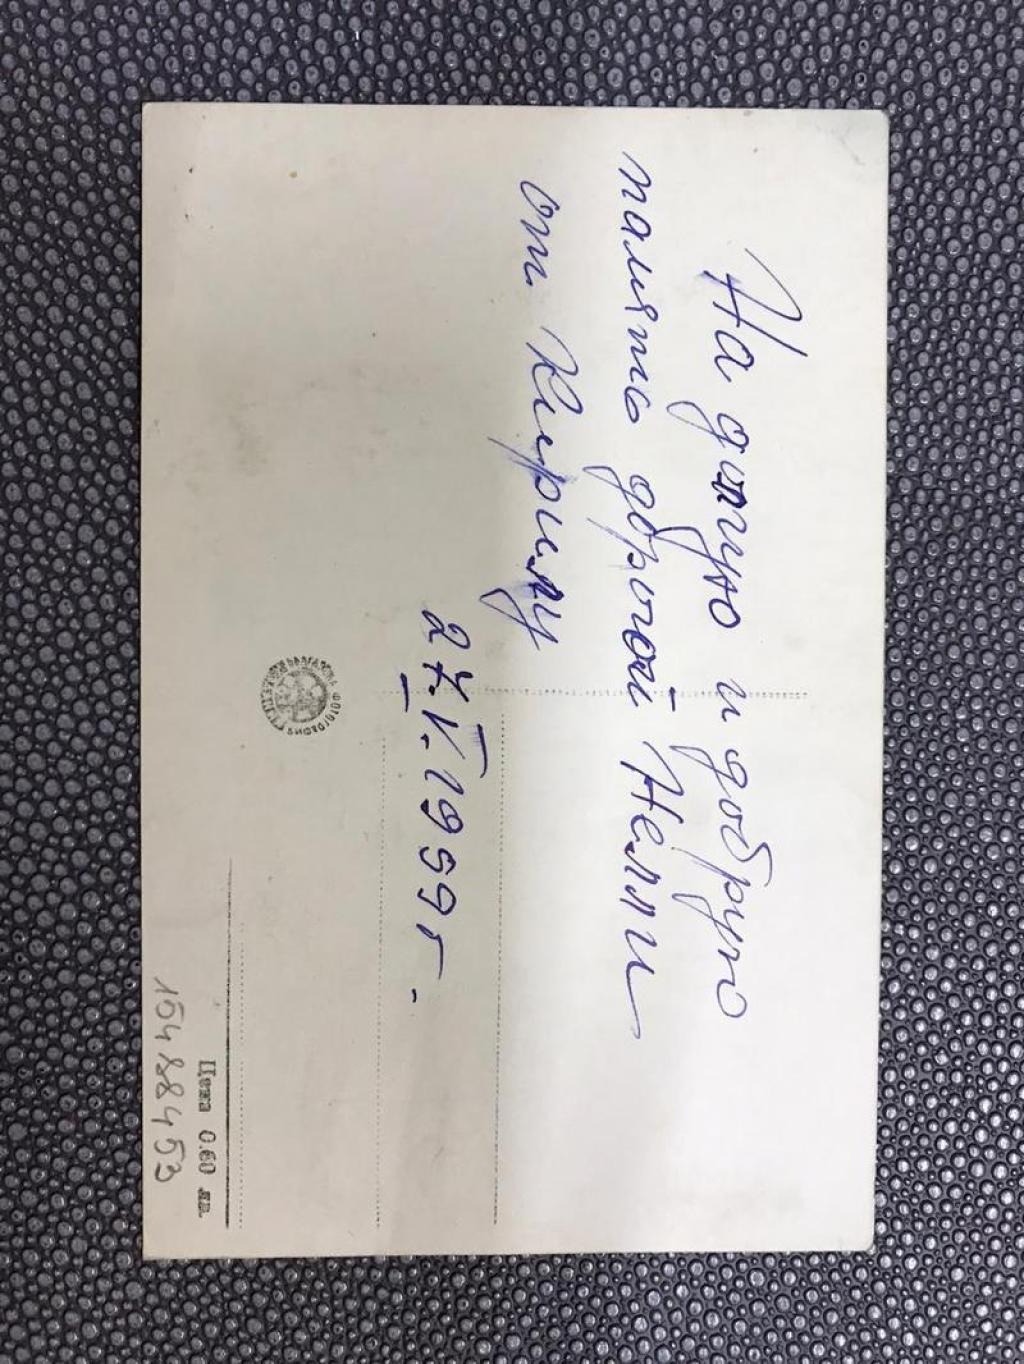 На долгую и добрую
память дорогой Нелли
от Кирилу
27.V.1959 г.
Цена 0.60 лв.
15488453